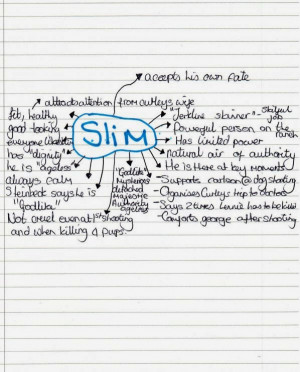 accepts his own fate
attracts attention from curleys wife
fit, healthy
good-looking
everyone
has "dignity"
he is "ageless"
always calm
Steinbeck says he is
"Godlike"
Not cruel even at 1st shooting
and when killing 4 pups.
Slim
"Godlike"
Mysterious
detached
Majestic
Authority
ageless
"Jerkline skinner" - skilful job
Powerful person on the ranch
Has limited power
natural air of authority
He is there at key moments
- Supports carlson @ dog shooting
- Organises Curley's trip to doctors
- Says 2 times Lennie has to be killed
- Comforts george after shooting